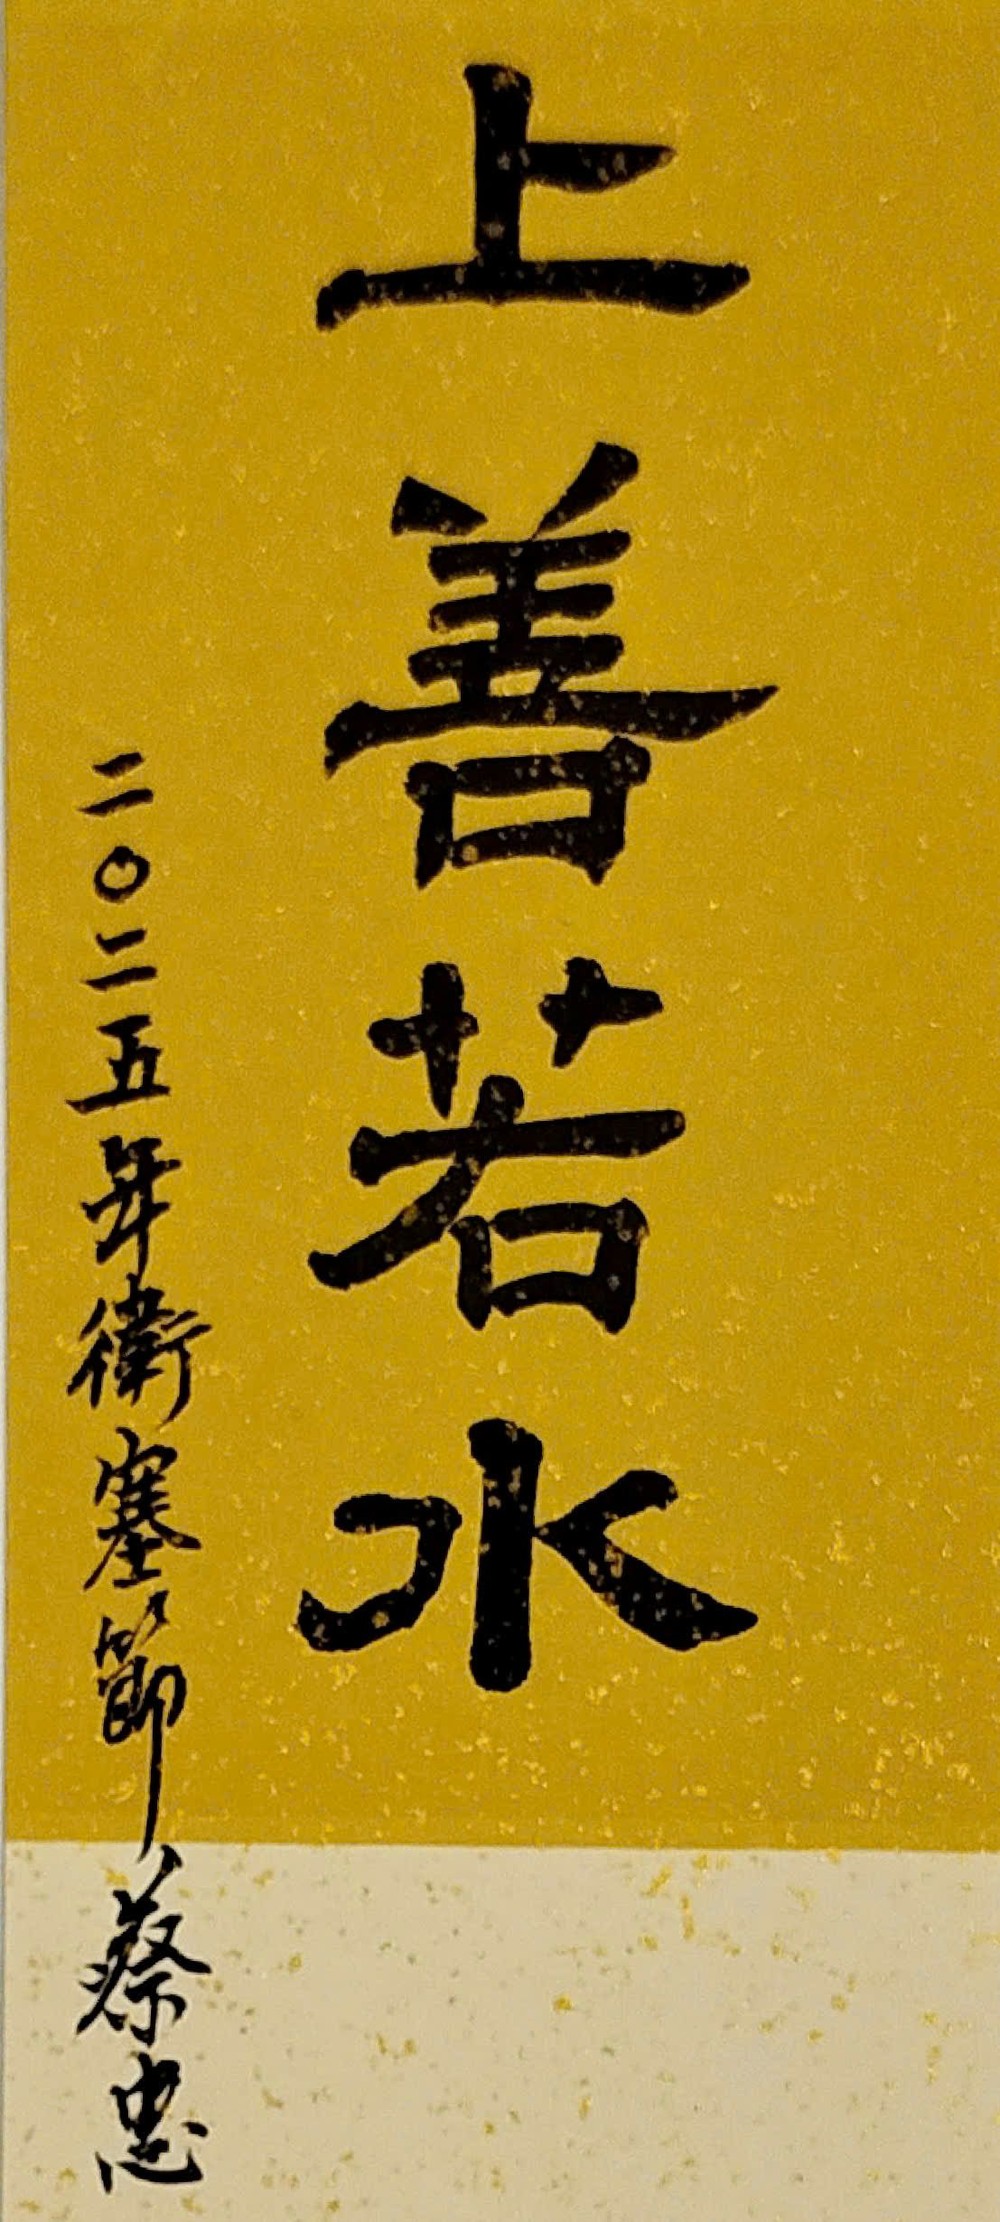 上善若水
二〇二五年衛塞節蔡忠